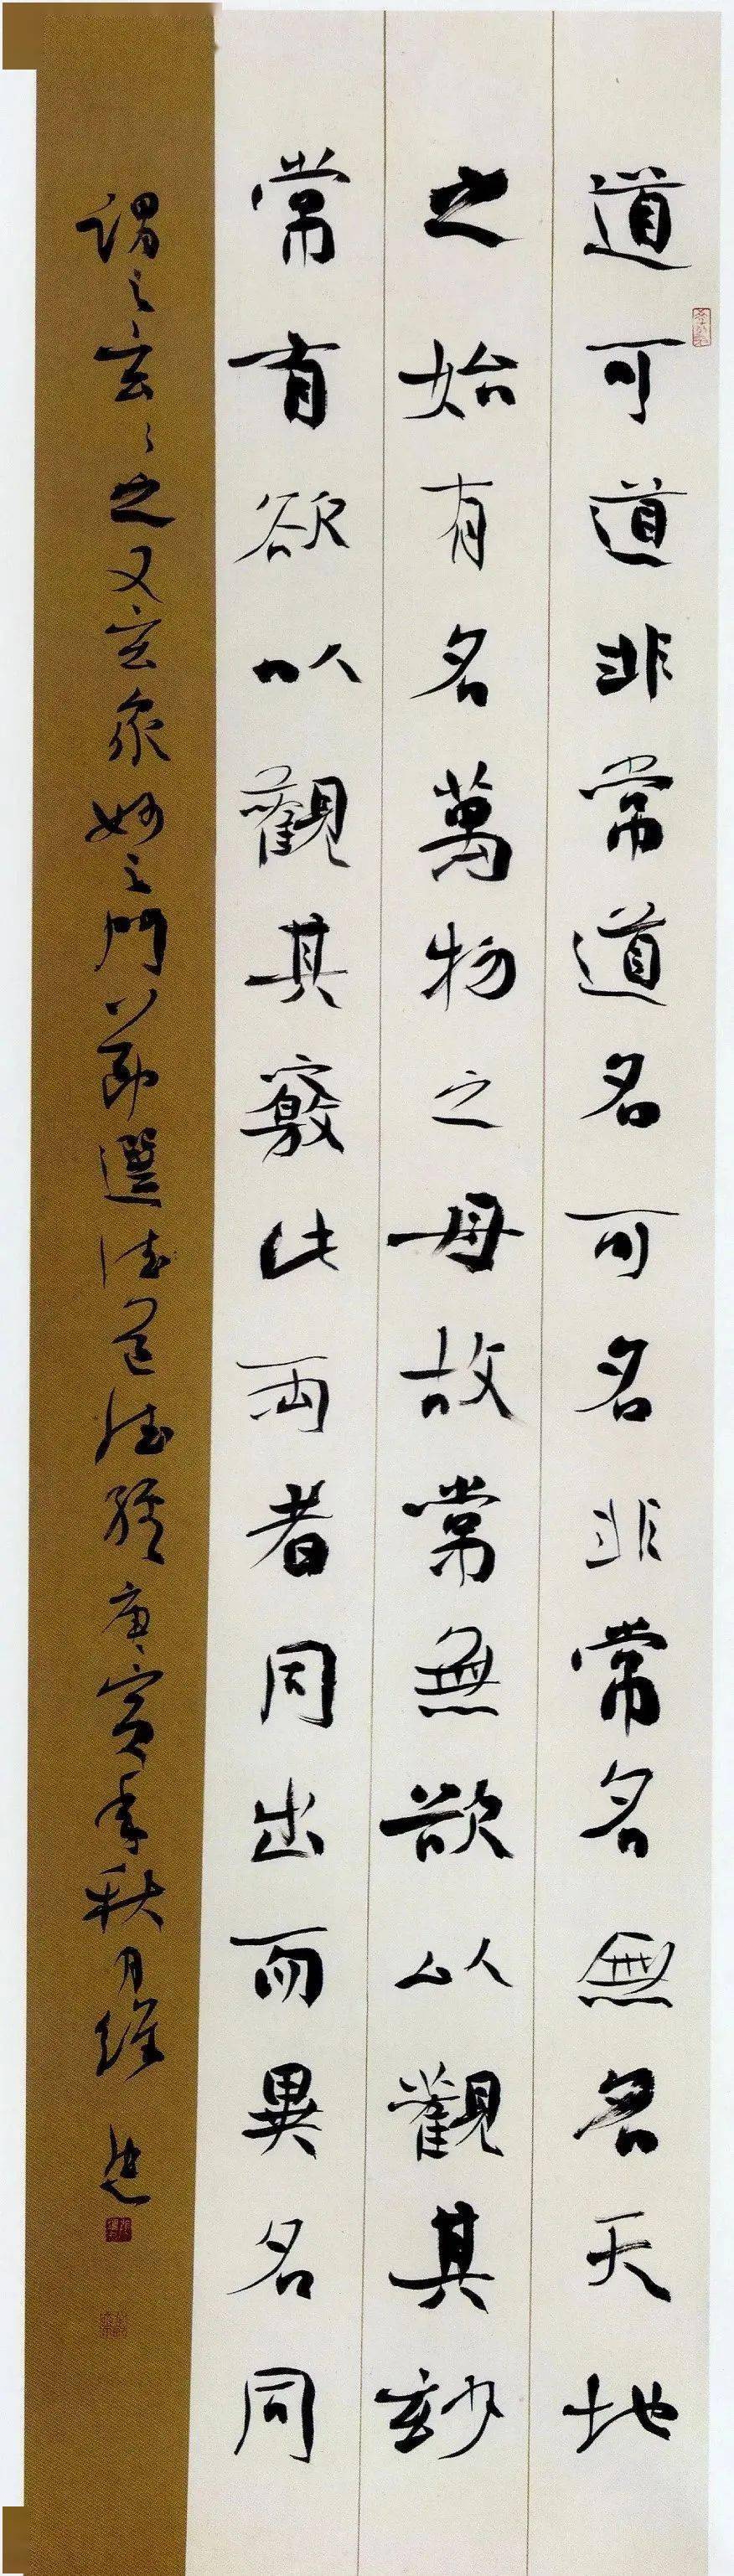 道可道非常道名可名非常名無名天地
之始有名萬物之母故常無欲以觀其玅
常有欲以觀其竅此兩者同出而異名同
謂之玄々之又玄衆妙之門節選道德經庚寅年秋月